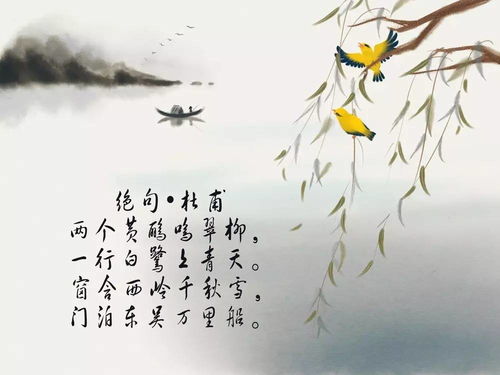 绝句•杜甫
两个黄鹂鸣翠柳，
一行白鹭上青天。
窗含西岭千秋雪，
门泊东吴万里船。